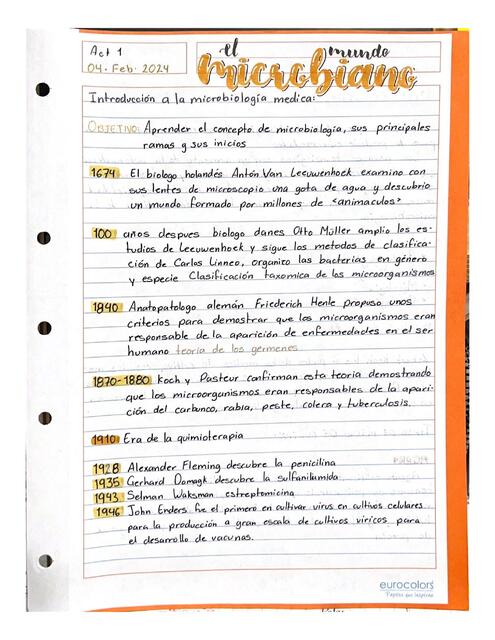 Act 1
04. Feb. 2024
el mundo
microbiano
Introducción a la microbiología medica:
OBJETIVO: Aprender el concepto de microbiología, sus principales
ramas y sus inicios
1674 El biologo holandés Antón Van Leeuwenhoek examino con
sus lentes de microscopio una gota de agua y descubrio
un mundo formado por millones de <animaculos>
100 años despues biologo danes Otto Müller amplio los es-
tudios de Leeuwenhoek y sigue los metodos de clasifica-
ción de Carlos Linneo, organizo las bacterias en género
y especie Clasificación taxomica de los microorganismos
1840 Anatopatologo alemán Friederich Henle propuso unos
criterios para demostrar que los microorganismos eran
responsable de la aparición de enfermedades en el ser
humano teoria de los germenes
1870-1880 Koch y Pasteur confirman esta teoria demostrando
que los microorganismos eran responsables de la apari-
ción del carbunco, rabia, peste, colera y tuberculosis.
1910 Era de la quimioterapia
1928 Alexander Fleming descubre la penicilina
1935 Gerhard Domagk descubre la sulfanilamida
1943 Selman Waksman estreptomicina
1946 John Enders fue el primero en cultivar virus en cultivos celulares
para la producción a gran escala de cultivos viricos para
el desarrollo de vacunas.
eurocolors
Papeles que inspiran